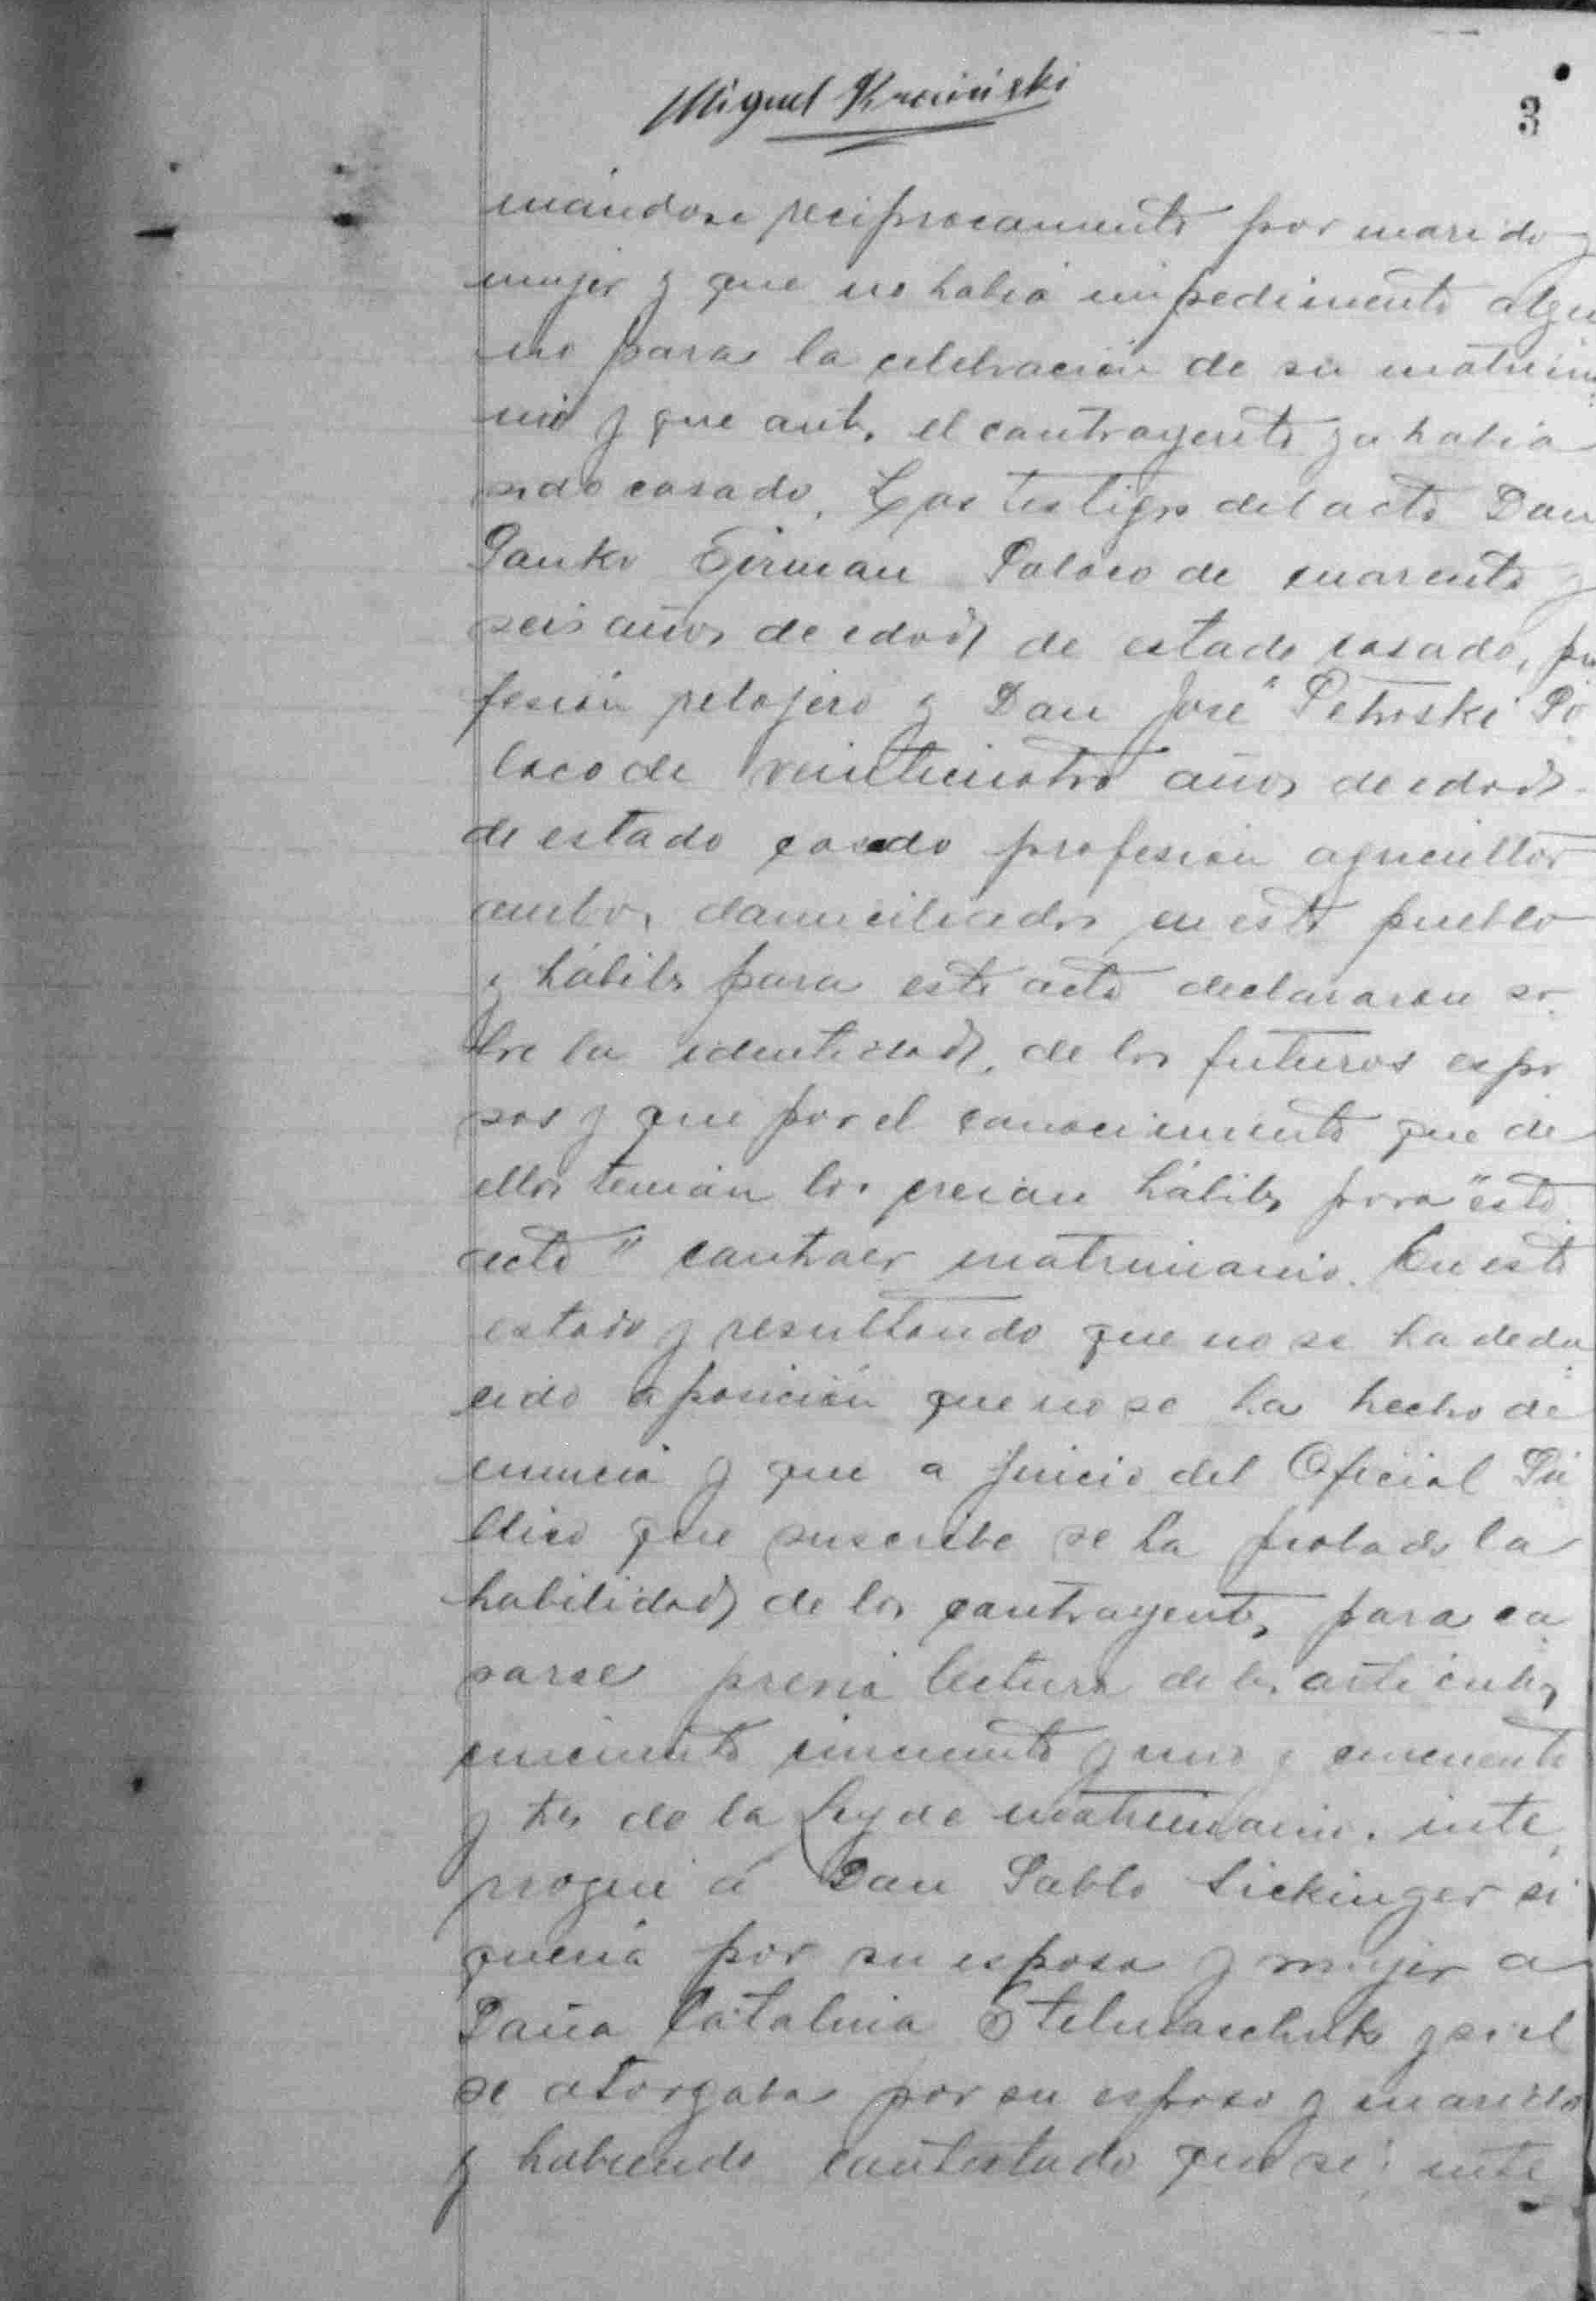 Miguel Krasiński
3
mándose reciprocamente por marido y
mujer y que no habia impedimento algu
no para la celebración de su matrimo
nio y que ants el contrayente ya habia
sido casado. Los testigos del acto Don
Panko German Polaco de cuarenta y
seis años de edad de estado casado, pro
fesión relojero y Don José Petroski Po
laco de veinticuatro años de edad
de estado casado profesión agricultor
ambos domiciliados en este pueblo
y hábiles para este acto declararon so
bre la identidad, de los futuros espo
sos y que por el conocimiento que de
ellos tenian los creian hábiles para "este
acto" contraer matrimonio. En este
estado y resultando que no se ha dedu
cido oposición que no se ha hecho de
nuncia y que a juicio del Oficial Pú
blico que suscribe se ha probado la
habilidad de los contrayentes para ca
sarse previa lectura de los articulos
cincuenta cincuenta y uno y cincuenta
y tres de la Ley de matrimonio. inte
rrogué á Don Pablo Sickinger si
queria por su esposa y mujer a
Doña Catalina Stelmaschuk y si el
se otorgaba por su esposo y marido
y habiendo contestado que si: inte